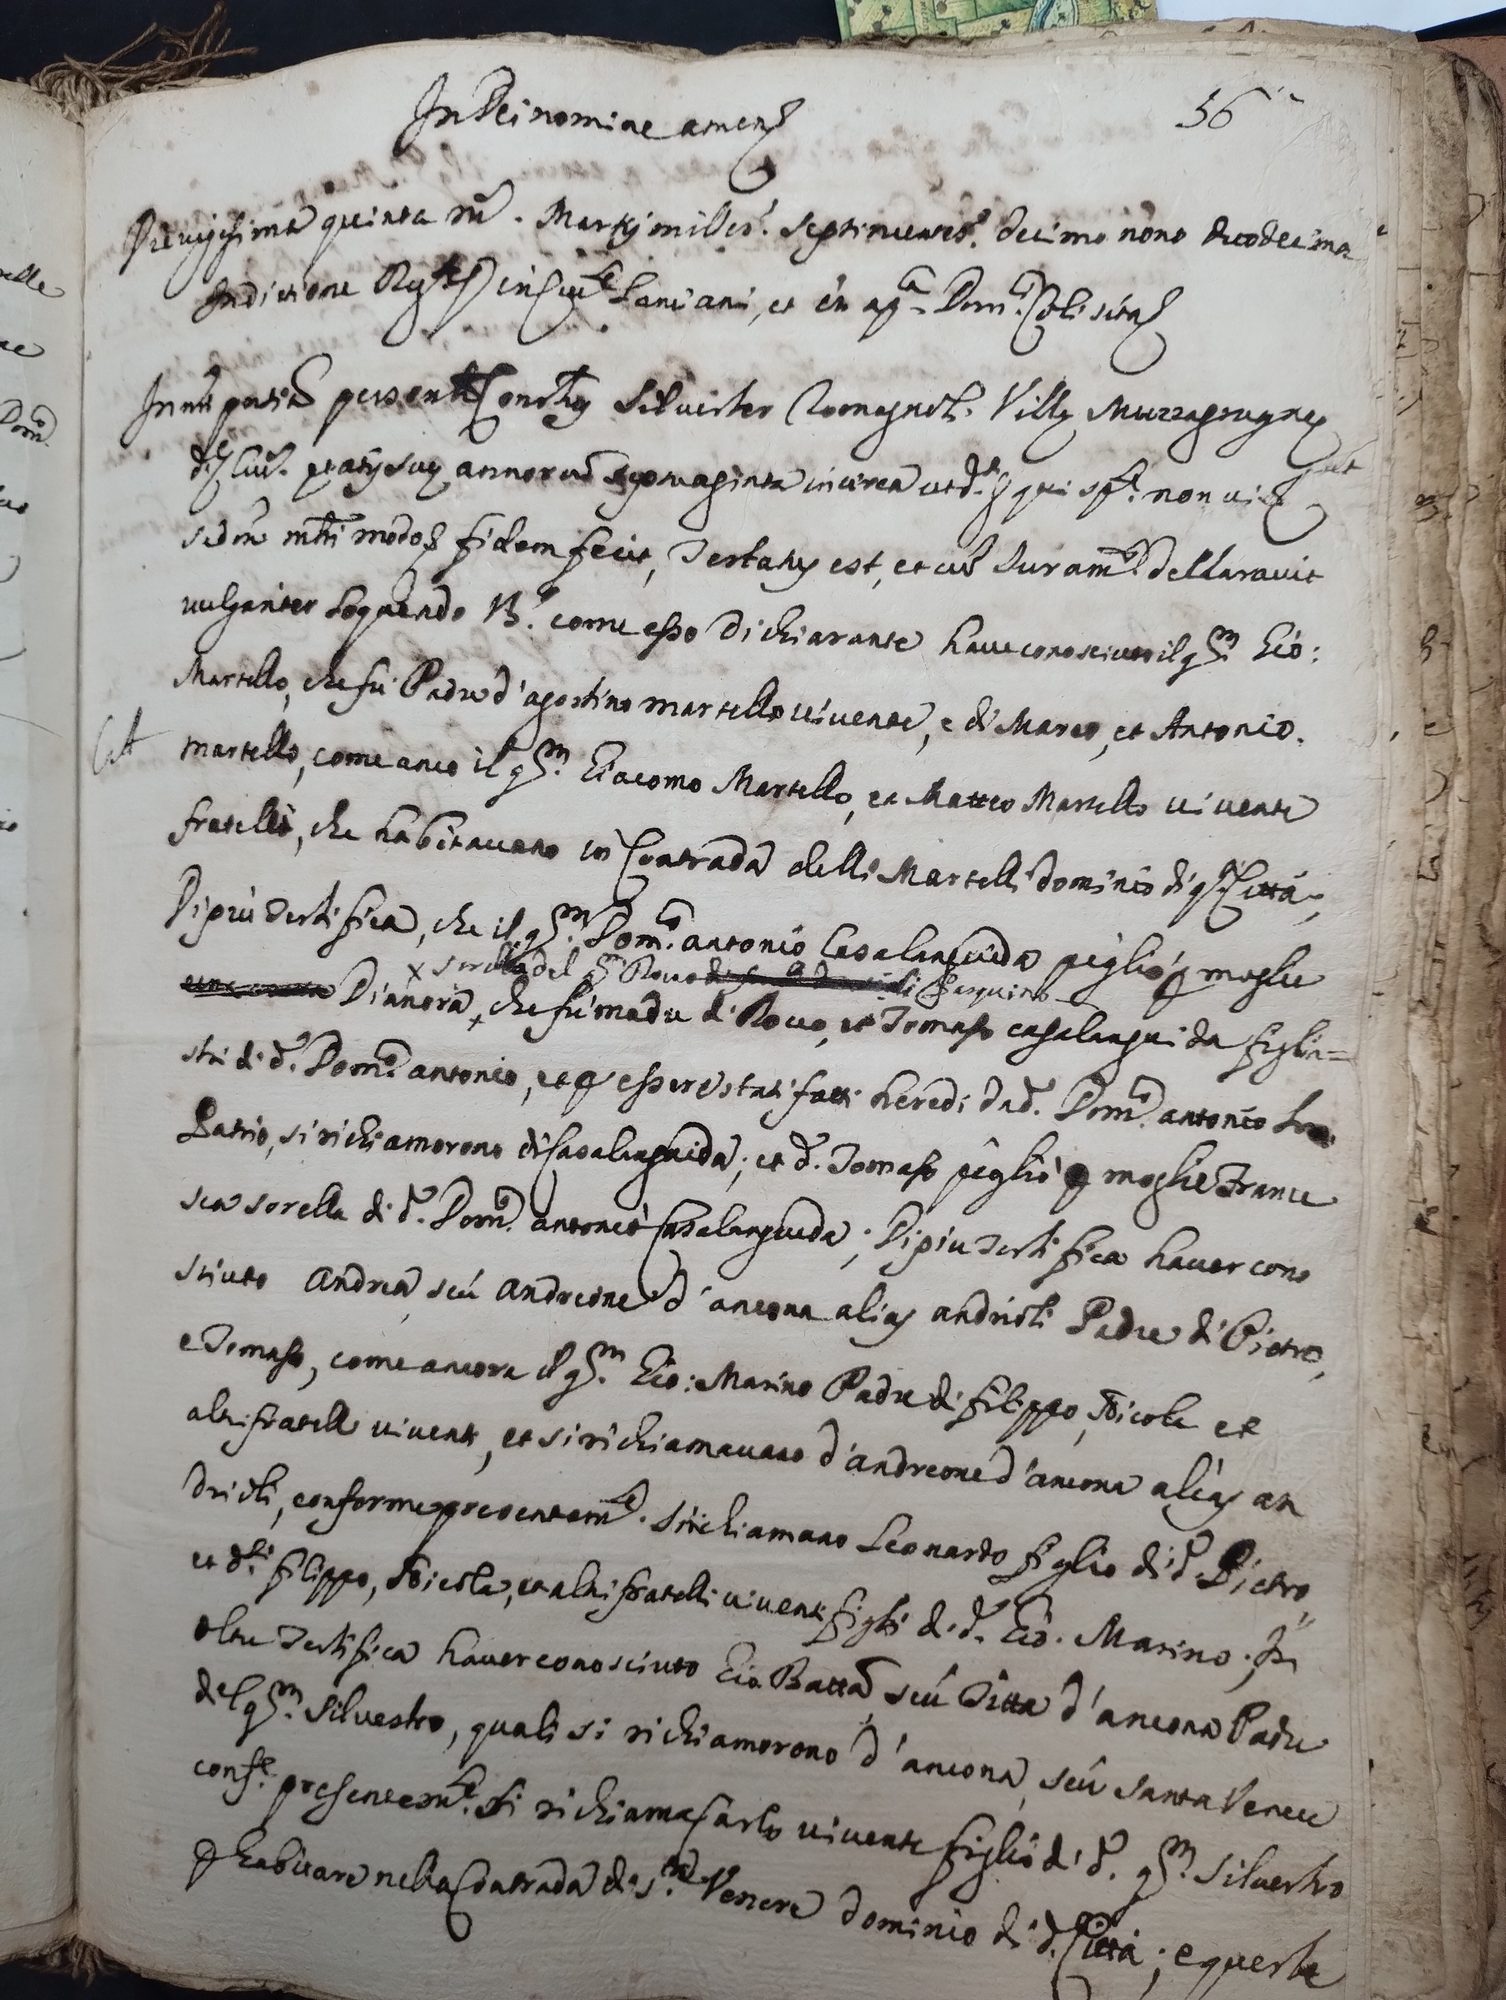 In Dei nomine amen
56
Die vigesima quinta m. Martij milles. septincentes. decimo nono duodecima
Indictione Reg. in Civ.te Lanciani, et in ap.a Dom. sita
In nri pntia personalr Constitus Silvester Romagnoli Villę Muzzagrugnę
d. Civ. ętatis suę annorū septuaginta in circa ut d. qui sp. non vi
sed oī mri modo fidem fecit, Testatus est, et cū Juram.o dellaravit
vulgariter loquendo V. come esso dichiarante have conosciuto il qm. Gio:
Martello, che fù Padre d'agostino martello vivente, e di Marco, et Antonio
martello, come anco il qm. Giacomo Martello, et Matteo Martello vivente
fratelli, che habitavano in Contrada delli Martelli dominio di q. Città,
Di più Testifica, che il qm. Dom.o antonio Casalanguida pigliò p moglie
x sorella del qm Rocco di Pasquino
Dianora, che fù madre di Rocco, et Tomaso casalanguida figlia=
stri di d. Dom.o antonio, et p essere stati fatti heredi da d. Dom.o antonio loro
Patrio, si richiamorono di Casalanguida; et d. Tomaso pigliò p moglie France
sca sorella di d. Dom.o antonio Casalanguida; Di più Testifica haver cono
sciuto Andrea, seù Andreone d'ancona alias andrioli Padre di Pietro,
e Tomaso, come ancora il qm. Gio: Marino Padre di filippo, Nicola et
altri fratelli viventi, et si richiamavano d'andreone d'ancona alias an
drioli, conforme presentem.te si richiamano Leonardo figlio di d. Pietro
et d.ti filippo, Nicola, et altri fratelli viventi figli di d. Gio. Marino; In
oltre Testifica haver conosciuto Gio. Batta, seù Titta d'ancona Padre
del qm. Silvestro, quali si richiamorono d'ancona, seù Santa Venere
conf.e presentem.te si richiama Carlo vivente figlio di d. qm. Silvestro
p habitare nella Contrada di S.ta Venere dominio di d. Città; e queste